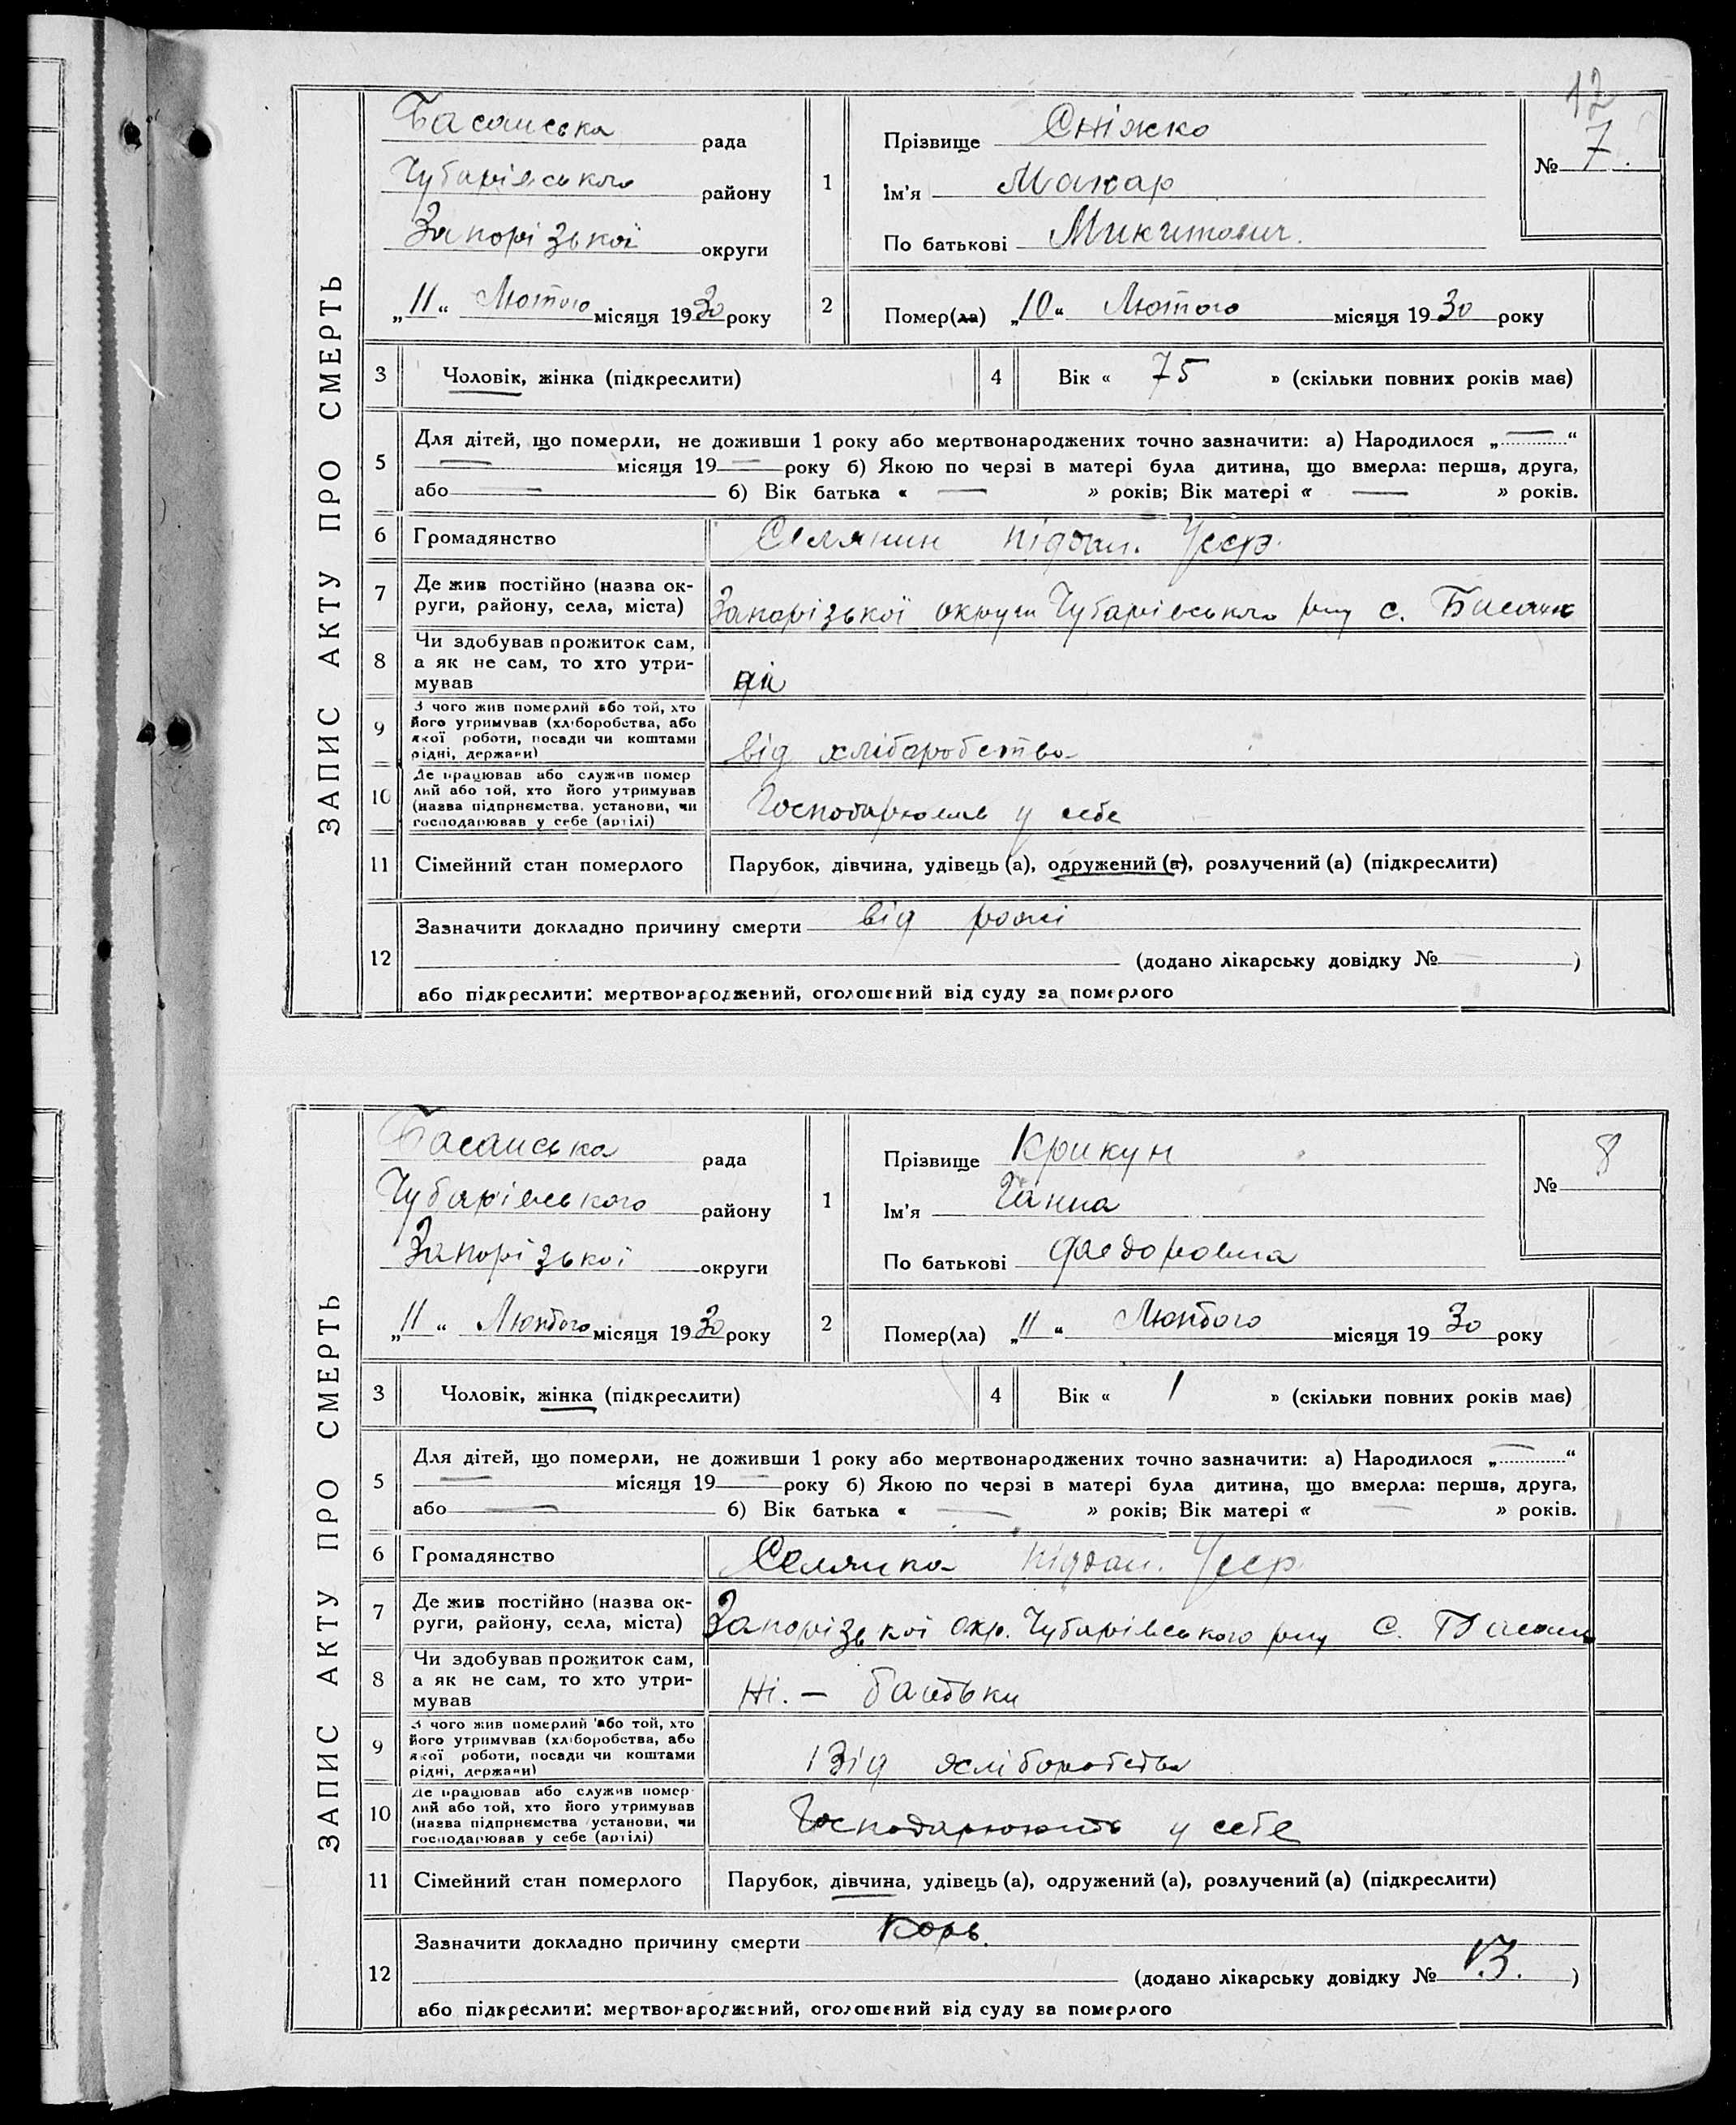 12
ЗАПИС АКТУ ПРО СМЕРТЬ
Басанська рада
Чубарівського району
Запорізької округи
„11“ Лютого місяця 1930 року
1
Прізвище Сніжко
Ім'я Макар
По батькові Микитович.
№ 7.
2
Помер(ла) „10“ Лютого місяця 1930 року
3 Чоловік, жінка (підкреслити)
4 Вік « 75 » (скільки повних років має)
5
Для дітей, що померли, не доживши 1 року або мертвонароджених точно зазначити: а) Народилося „—“
— місяця 19— року б) Якою по черзі в матері була дитина, що вмерла: перша, друга,
або — б) Вік батька « — » років; Вік матері « — » років.
6 Громадянство Селянин піддан. Усср.
7 Де жив постійно (назва ок-
руги, району, села, міста) Запорізької округи Чубарівського р-ну с. Басань
8 Чи здобував прожиток сам,
а як не сам, то хто утри-
мував
9 З чого жив померлий або той, хто
його утримував (хліборобства, або
якої роботи, посади чи коштами
рідні, держави) від хліборобства
10 Де працював або служив помер
лий або той, хто його утримував
(назва підприємства, установи, чи
господарював у себе (артілі) Господарював у себе
11 Сімейний стан померлого Парубок, дівчина, удівець (а), одружений (а), розлучений (а) (підкреслити)
12
Зазначити докладно причину смерти від рожі
(додано лікарську довідку № )
або підкреслити: мертвонароджений, оголошений від суду за померлого
ЗАПИС АКТУ ПРО СМЕРТЬ
Басанська рада
Чубарівського району
Запорізької округи
„11“ Лютого місяця 1930 року
1
Прізвище Крикун
Ім'я Ганна
По батькові Федоровна
№ 8
2
Помер(ла) „11“ Лютого місяця 1930 року
3 Чоловік, жінка (підкреслити)
4 Вік « 1 » (скільки повних років має)
5
Для дітей, що померли, не доживши 1 року або мертвонароджених точно зазначити: а) Народилося „—“
— місяця 19— року б) Якою по черзі в матері була дитина, що вмерла: перша, друга,
або — б) Вік батька « — » років; Вік матері « — » років.
6 Громадянство Селянка піддан. Усср.
7 Де жив постійно (назва ок-
руги, району, села, міста) Запорізької окр. Чубарівського р-ну с. Басань
8 Чи здобував прожиток сам,
а як не сам, то хто утри-
мував Ні. – батьки
9 З чого жив померлий або той, хто
його утримував (хліборобства, або
якої роботи, посади чи коштами
рідні, держави) Від хліборобства
10 Де працював або служив помер
лий або той, хто його утримував
(назва підприємства установи, чи
господарював у себе (артілі) Господарюють у себе
11 Сімейний стан померлого Парубок, дівчина, удівець (а), одружений (а), розлучений (а) (підкреслити)
12
Зазначити докладно причину смерти Корь.
(додано лікарську довідку № 13. )
або підкреслити: мертвонароджений, оголошений від суду за померлого